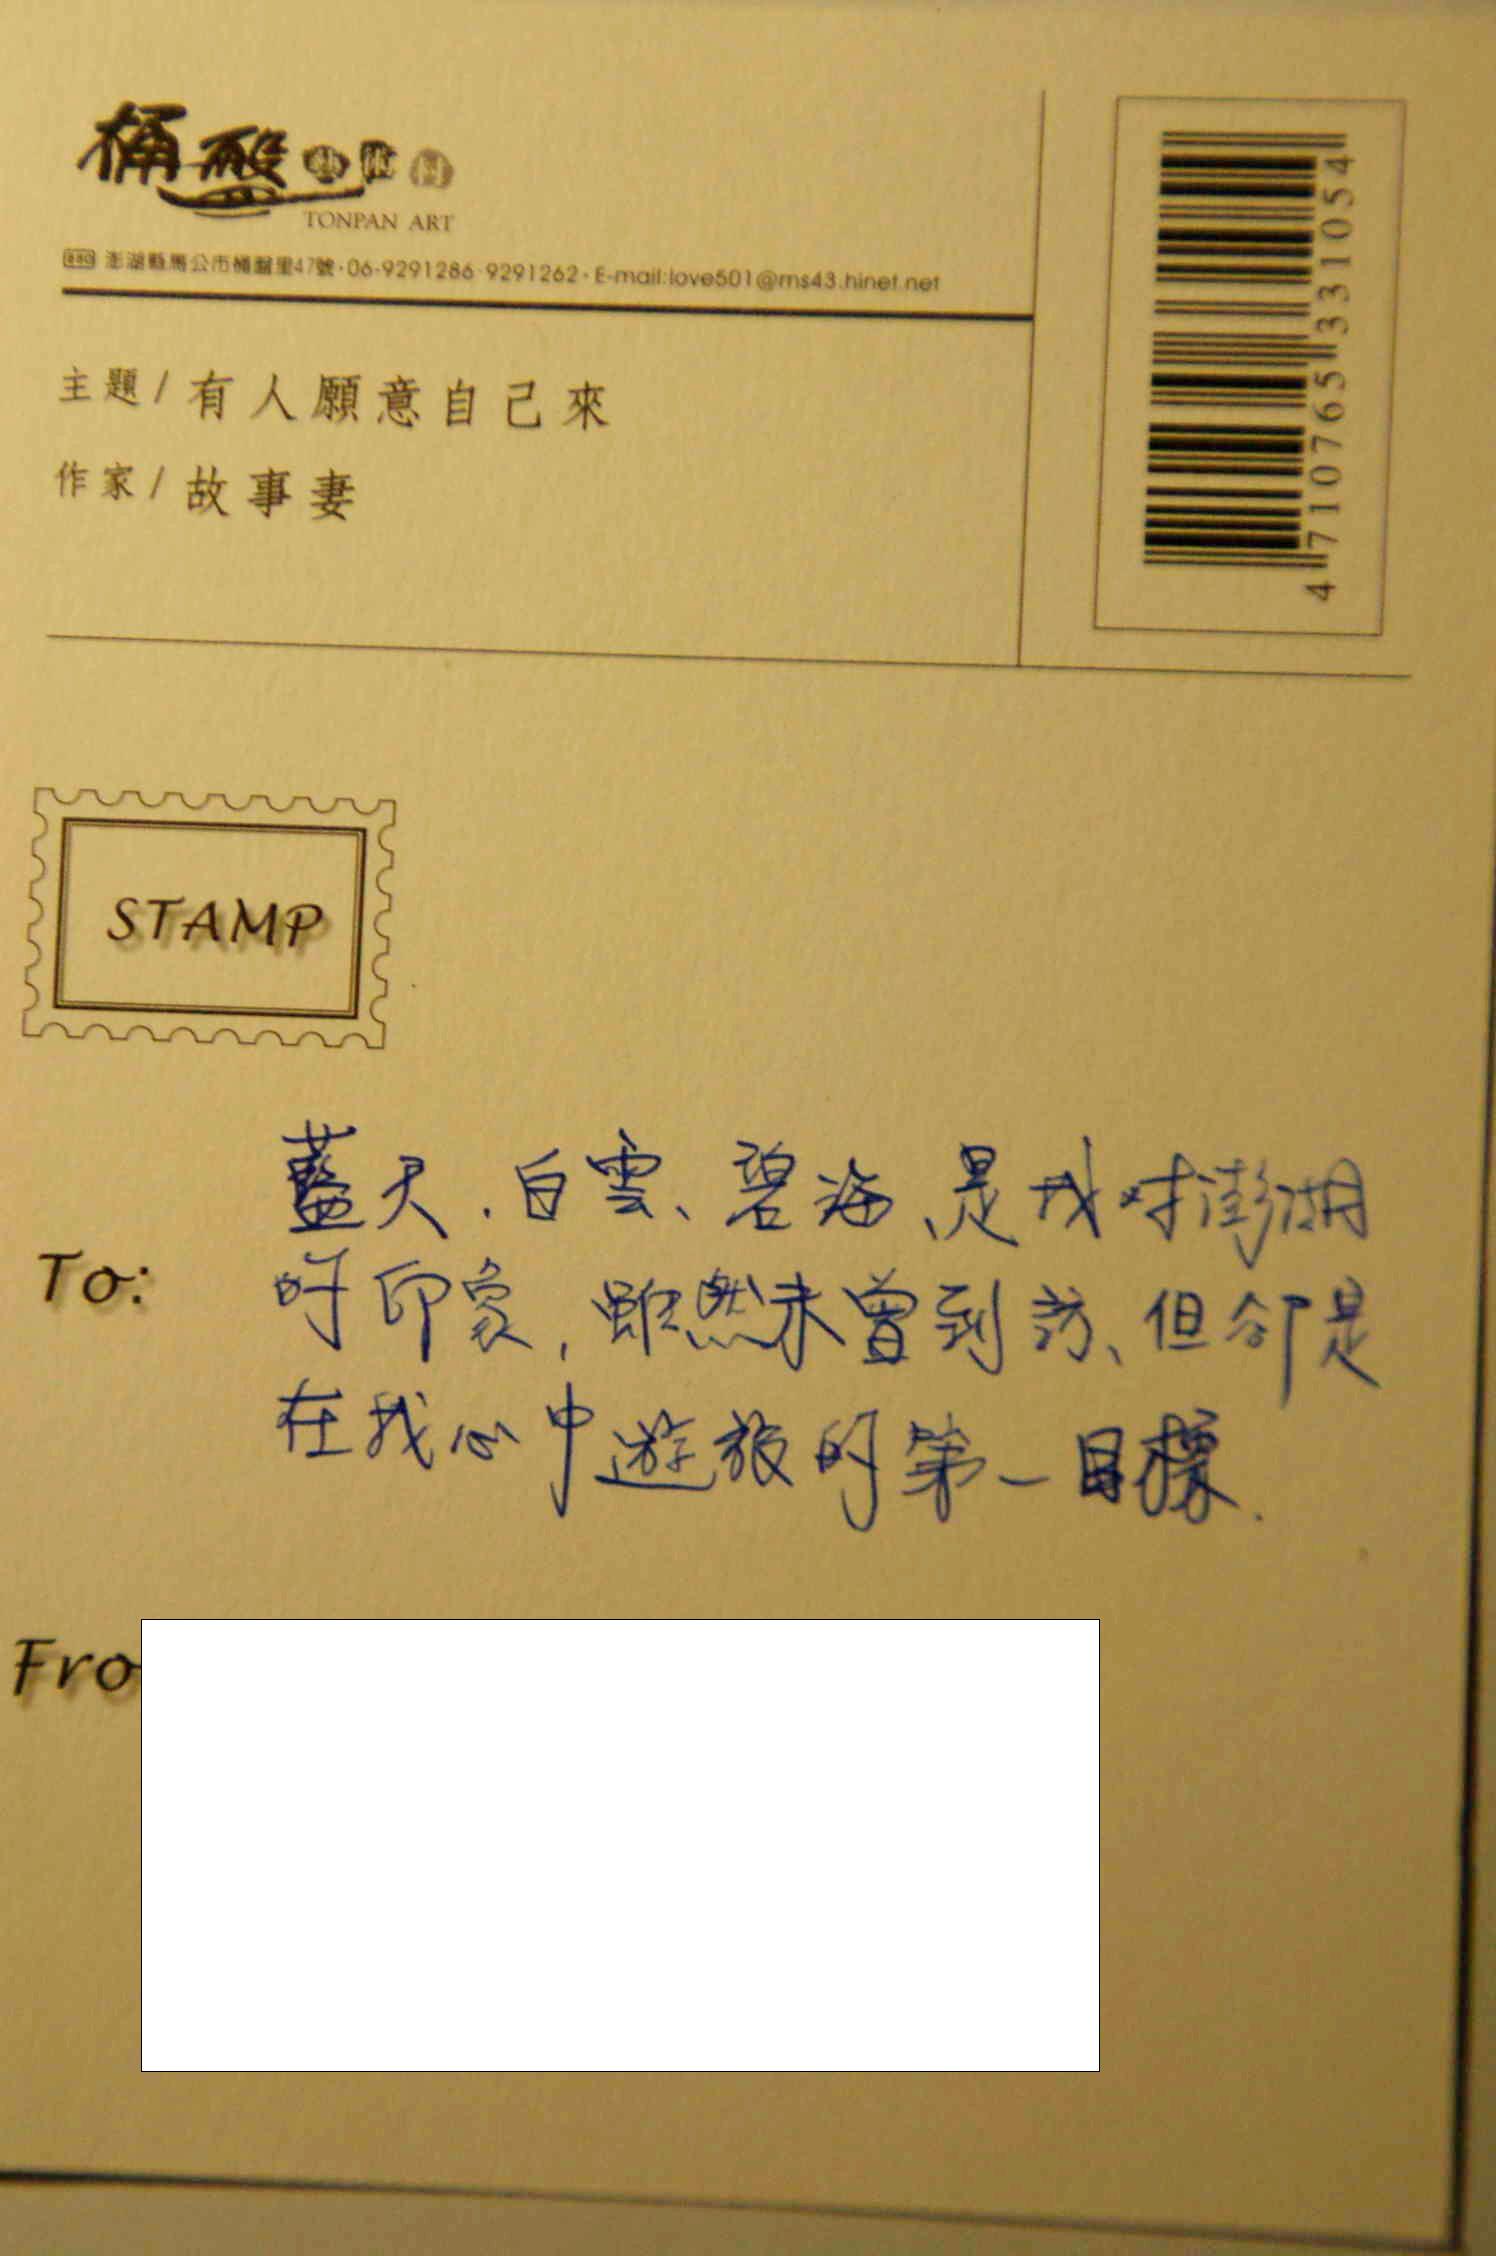 桶盤藝術村
TONPAN ART
880 澎湖縣馬公市桶盤里47號·06-9291286·9291262·E-mail:love501@ms43.hinet.net
主題/有人願意自己來
作家/故事妻
4710765331054
STAMP
To:
藍天、白雲、碧海、是我對澎湖
的印象，雖然未曾到訪、但卻是
在我心中遊旅的第一目標.
Fro